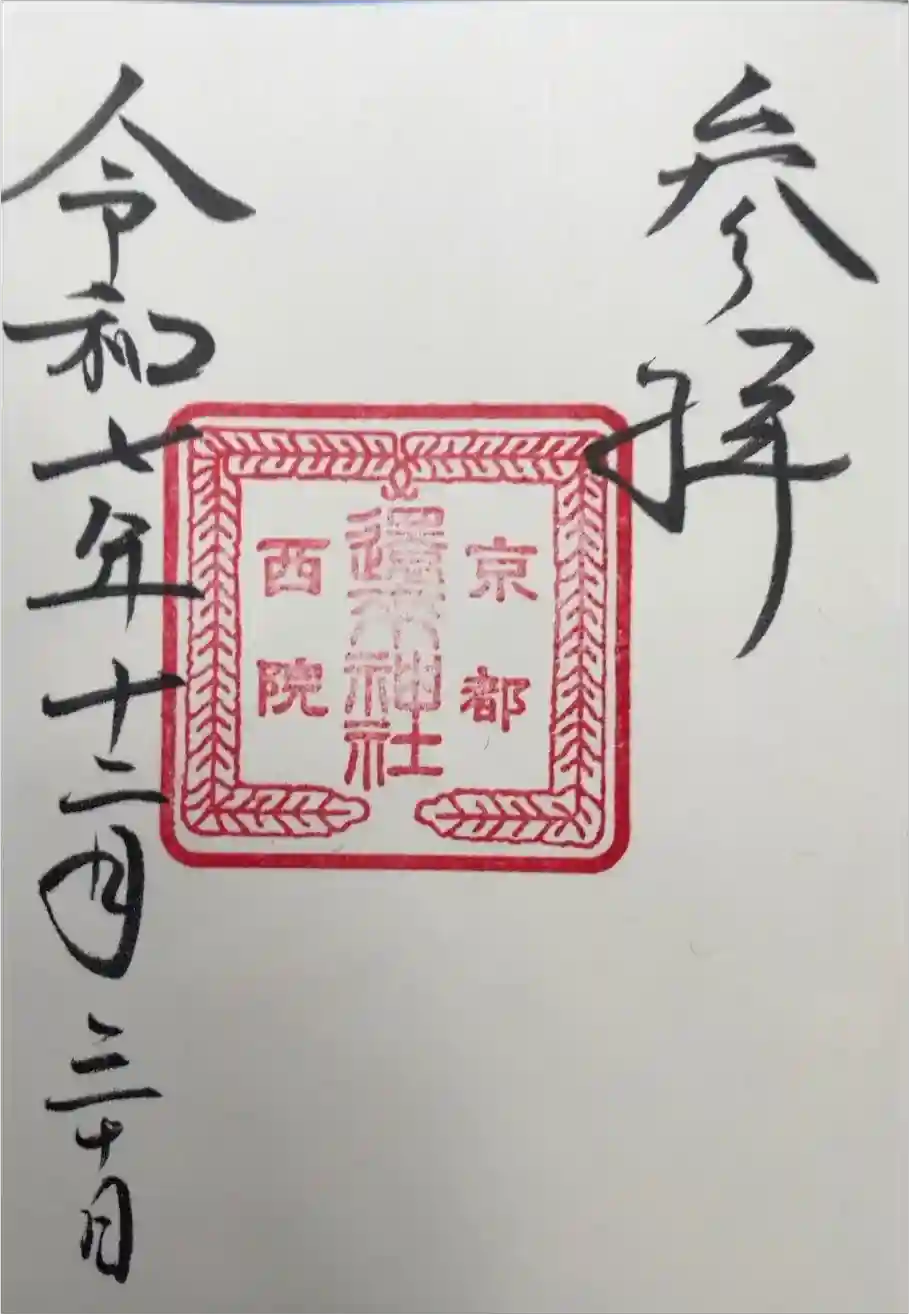 参拝
京都
還来神社
西院
令和七年十二月三十日